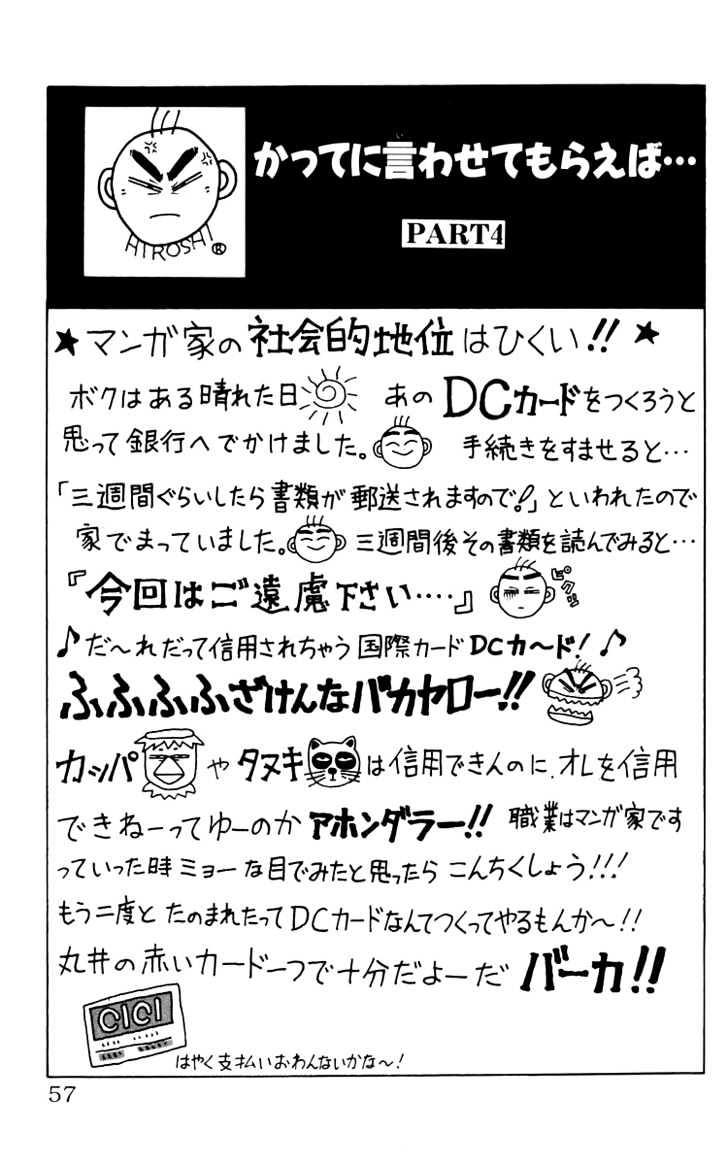 かってに言わせてもらえば…
PART4
HIROSHI ®
★マンガ家の社会的地位はひくい!!★
ボクはある晴れた日 あのDCカードをつくろうと
思って銀行へでかけました。 手続きをすませると…
「三週間ぐらいしたら書類が郵送されますので!」といわれたので
家でまっていました。 三週間後その書類を読んでみると…
『今回はご遠慮下さい‥‥』 ピクッ
♪だ〜れだって信用されちゃう国際カードDCカ〜ド!♪
ふふふふざけんなバカヤロー!!
カッパ や タヌキ は信用できんのに、オレを信用
できねーってゆーのかアホンダラー!! 職業はマンガ家です
っていった時ミョーな目でみたと思ったらこんちくしょう!!!
もう二度とたのまれたってDCカードなんてつくってやるもんか〜!!
丸井の赤いカード一つで十分だよーだ バーカ!!
OIOI
はやく支払いおわんないかな〜!
57